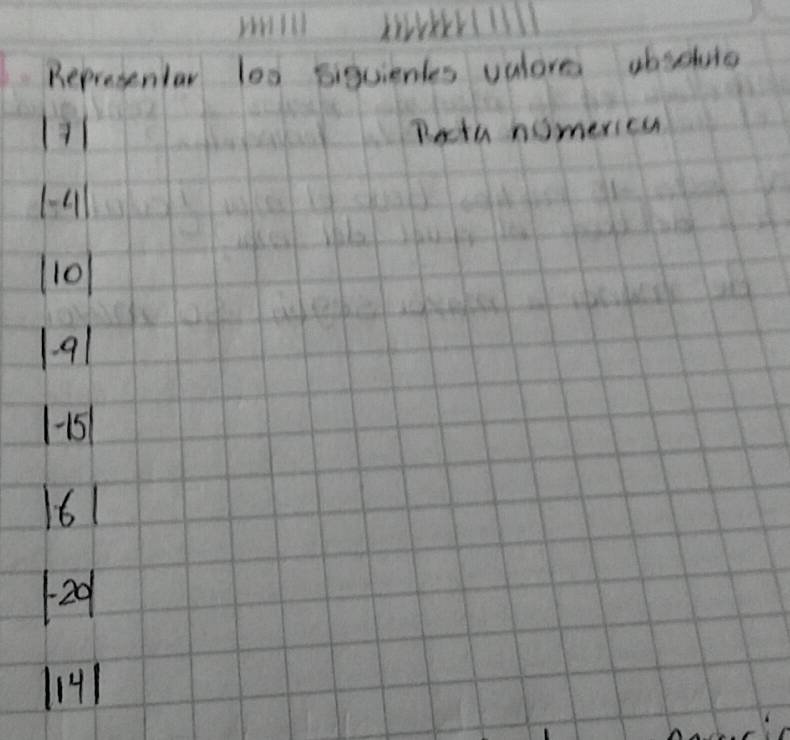 Representar los siguientes valores absoluto
|7| Recta númerica
|-4|
|10|
|-9|
|-15|
|-6|
|-20|
|14|